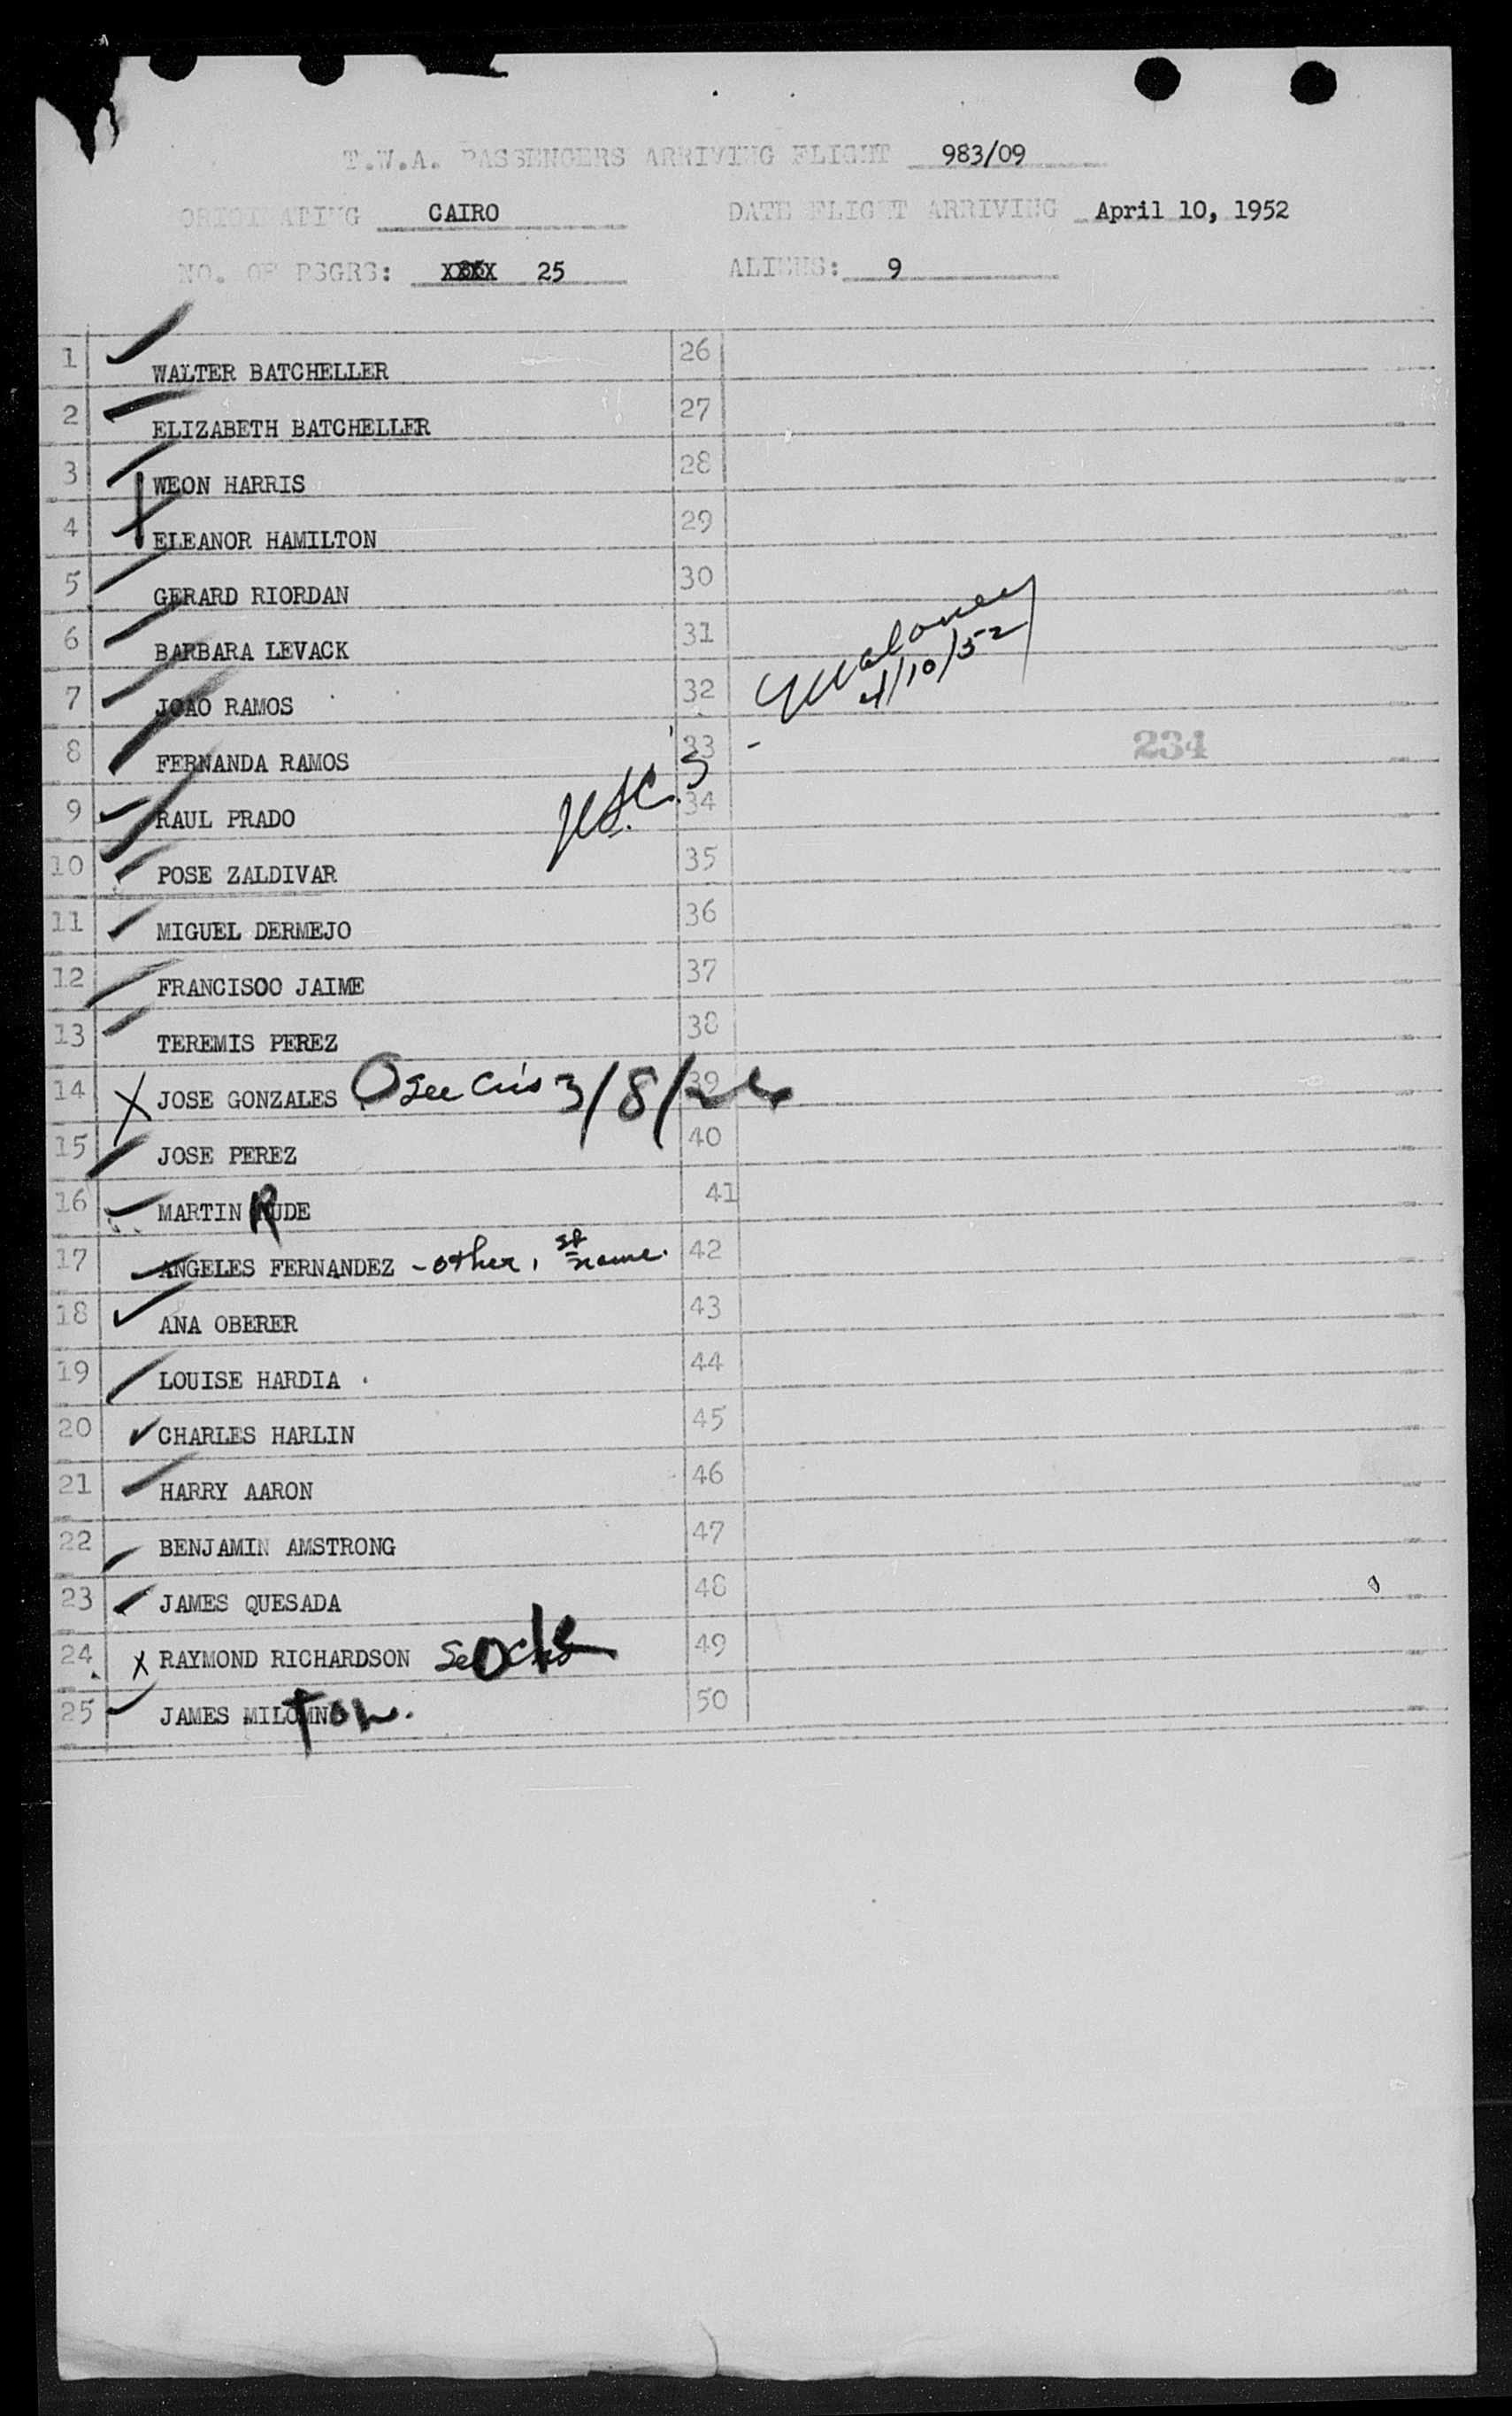 T.W.A. PASSENGERS ARRIVING FLIGHT 983/09
ORIGINATING CAIRO DATE FLIGHT ARRIVING April 10, 1952
NO. OF PSGRS: 25 ALIENS: 9
1 WALTER BATCHELLER 26
2 ELIZABETH BATCHELLER 27
3 WEON HARRIS 28
4 ELEANOR HAMILTON 29
5 GERARD RIORDAN 30
6 BARBARA LEVACK 31
7 JOAO RAMOS 32
4/10/52
8 FERNANDA RAMOS 33 234
9 RAUL PRADO 34
10 POSE ZALDIVAR 35
11 MIGUEL DERMEJO 36
12 FRANCISOO JAIME 37
13 TEREMIS PEREZ 38
14 JOSE GONZALES See 3/8/ 39
15 JOSE PEREZ 40
16 MARTIN RUDE 41
17 ANGELES FERNANDEZ - other, name. 42
18 ANA OBERER 43
19 LOUISE HARDIA 44
20 CHARLES HARLIN 45
21 HARRY AARON 46
22 BENJAMIN AMSTRONG 47
23 JAMES QUESADA 48
24 RAYMOND RICHARDSON 49
25 JAMES MILTON. 50